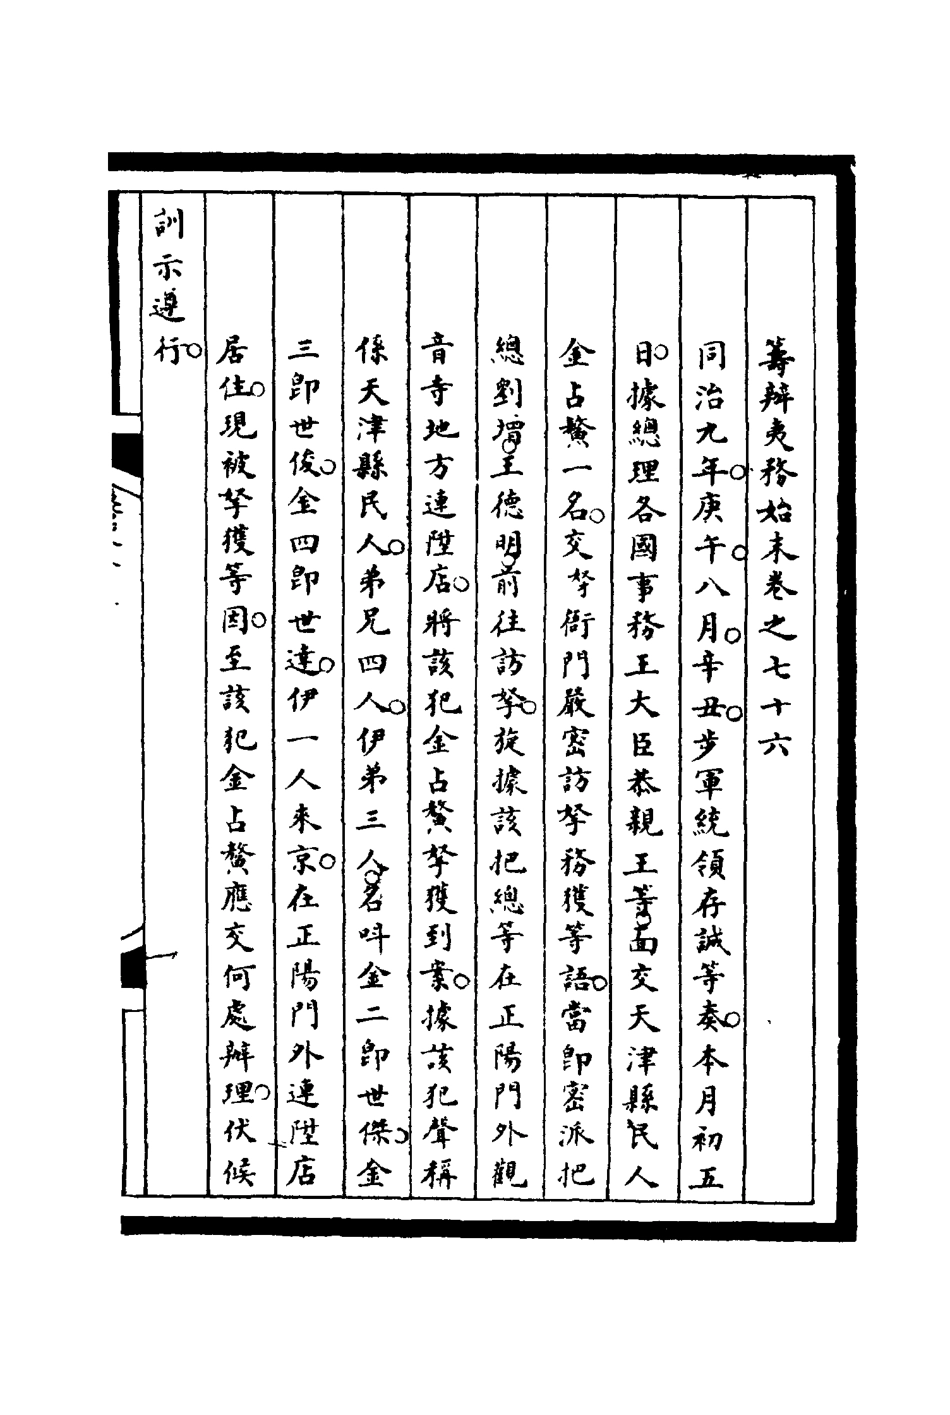 籌辦夷務始末卷之七十六
同治九年。庚午。八月。辛丑。步軍統領存誠等奏。本月初五
日。據總理各國事務王大臣恭親王等。面交天津縣民人
金占鰲一名。交拏衙門嚴密訪拏務獲等語。當即密派把
總劉增。王德明。前往訪拏。旋據該把總等在正陽門外觀
音寺地方連陞店。將該犯金占鰲拏獲到案。據該犯聲稱
係天津縣民人。弟兄四人。伊弟三人。名呌金二即世傑。金
三即世俊。金四即世達。伊一人來京。在正陽門外連陞店
居住。現被拏獲等因。至該犯金占鰲應交何處辦理。伏候
訓示遵行。